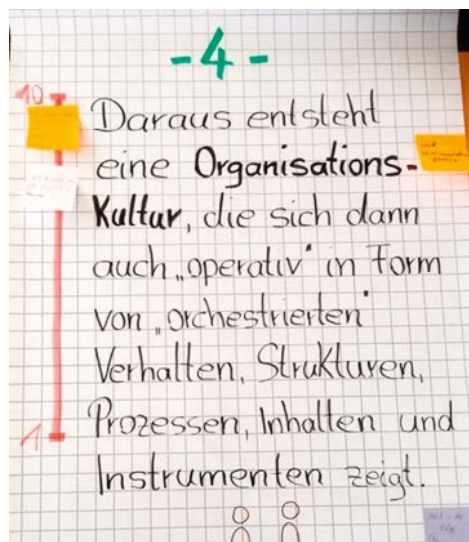 -4-
10
Daraus entsteht
eine Organisations-
Kultur, die sich dann
auch „operativ“ in Form
von „orchestrierten“
Verhalten, Strukturen,
Prozessen, Inhalten und
1
Instrumenten zeigt.